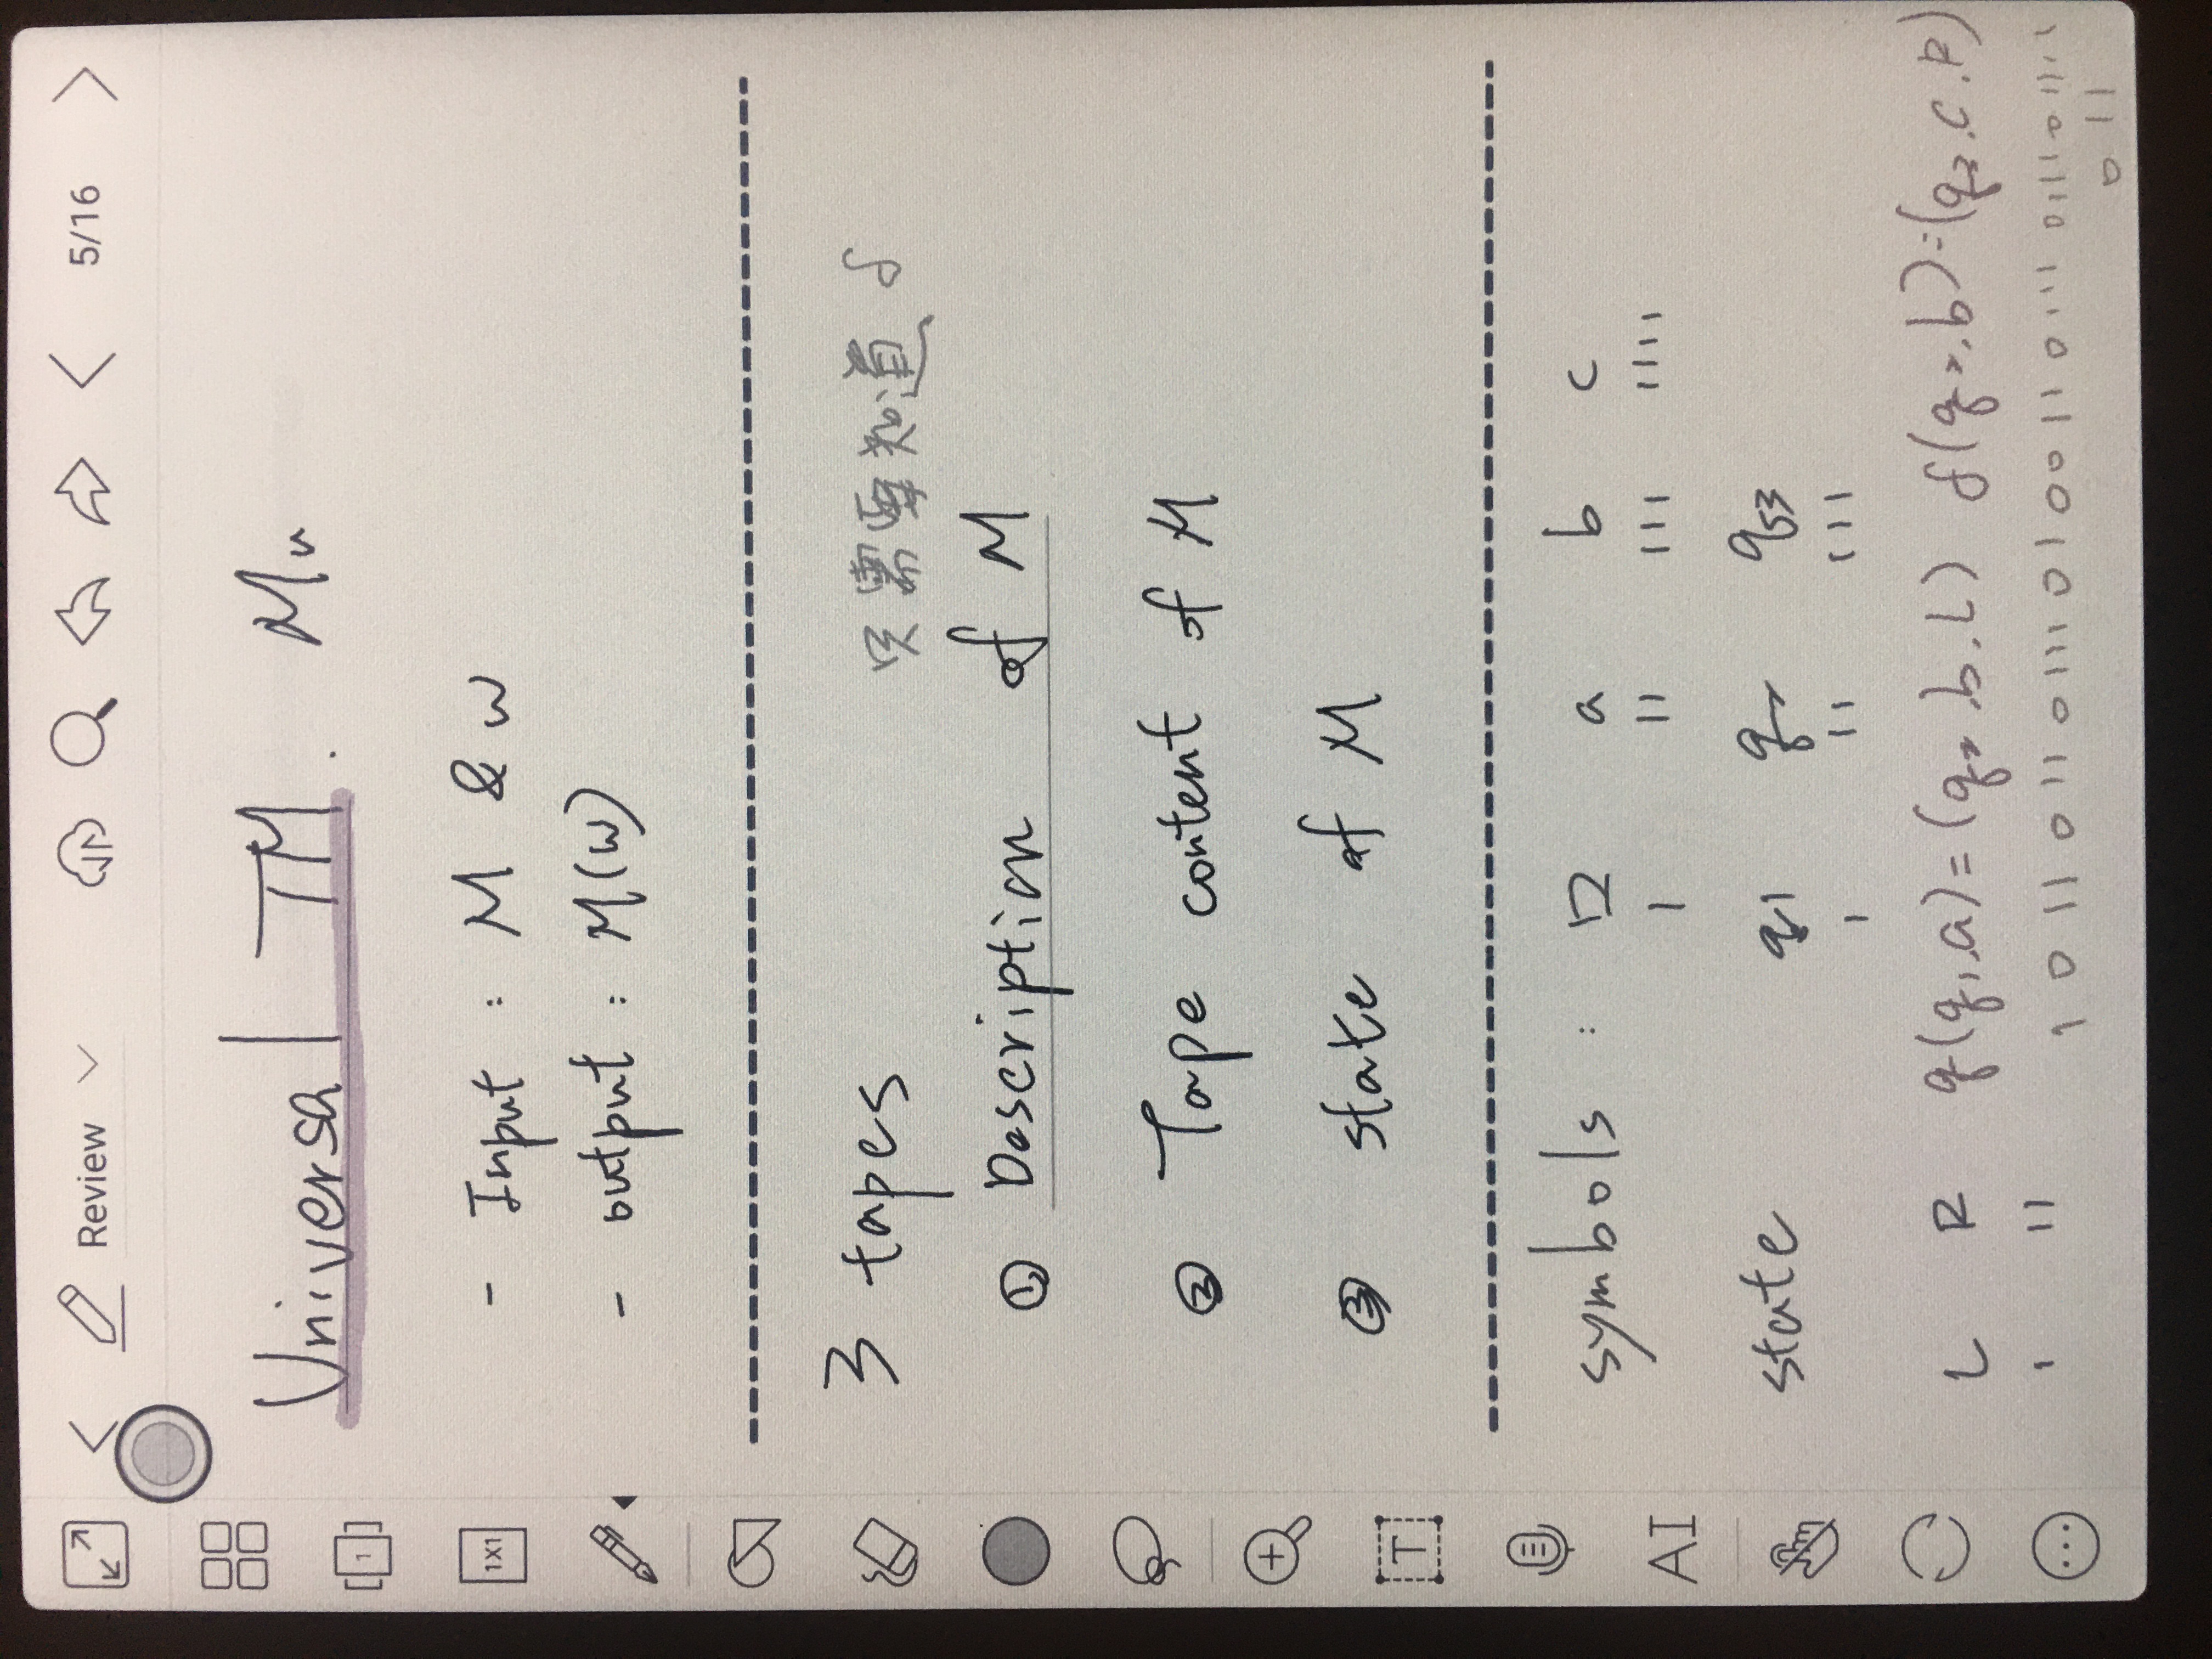 Review 5/16
1
1X1
T
AI
Universal TM. Mu
- Input : M & w
- output : M(w)
3 tapes
只需要知道 δ
① Description of M
② Tape content of M
③ state of M
symbols : □ a b c
1 11 111 1111
state q1 q2 q3
1 11 111
L R q(q1,a)=(q2,b,L) δ(q2,b)=(q3,c,R)
1 11 1 0 11 0 11 0 111 0 1 00 11 0 111 0 111 0 1111
0 11